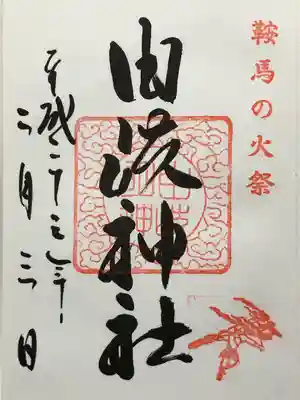 鞍馬の火祭
由岐神社
平成二十三年
二月三日